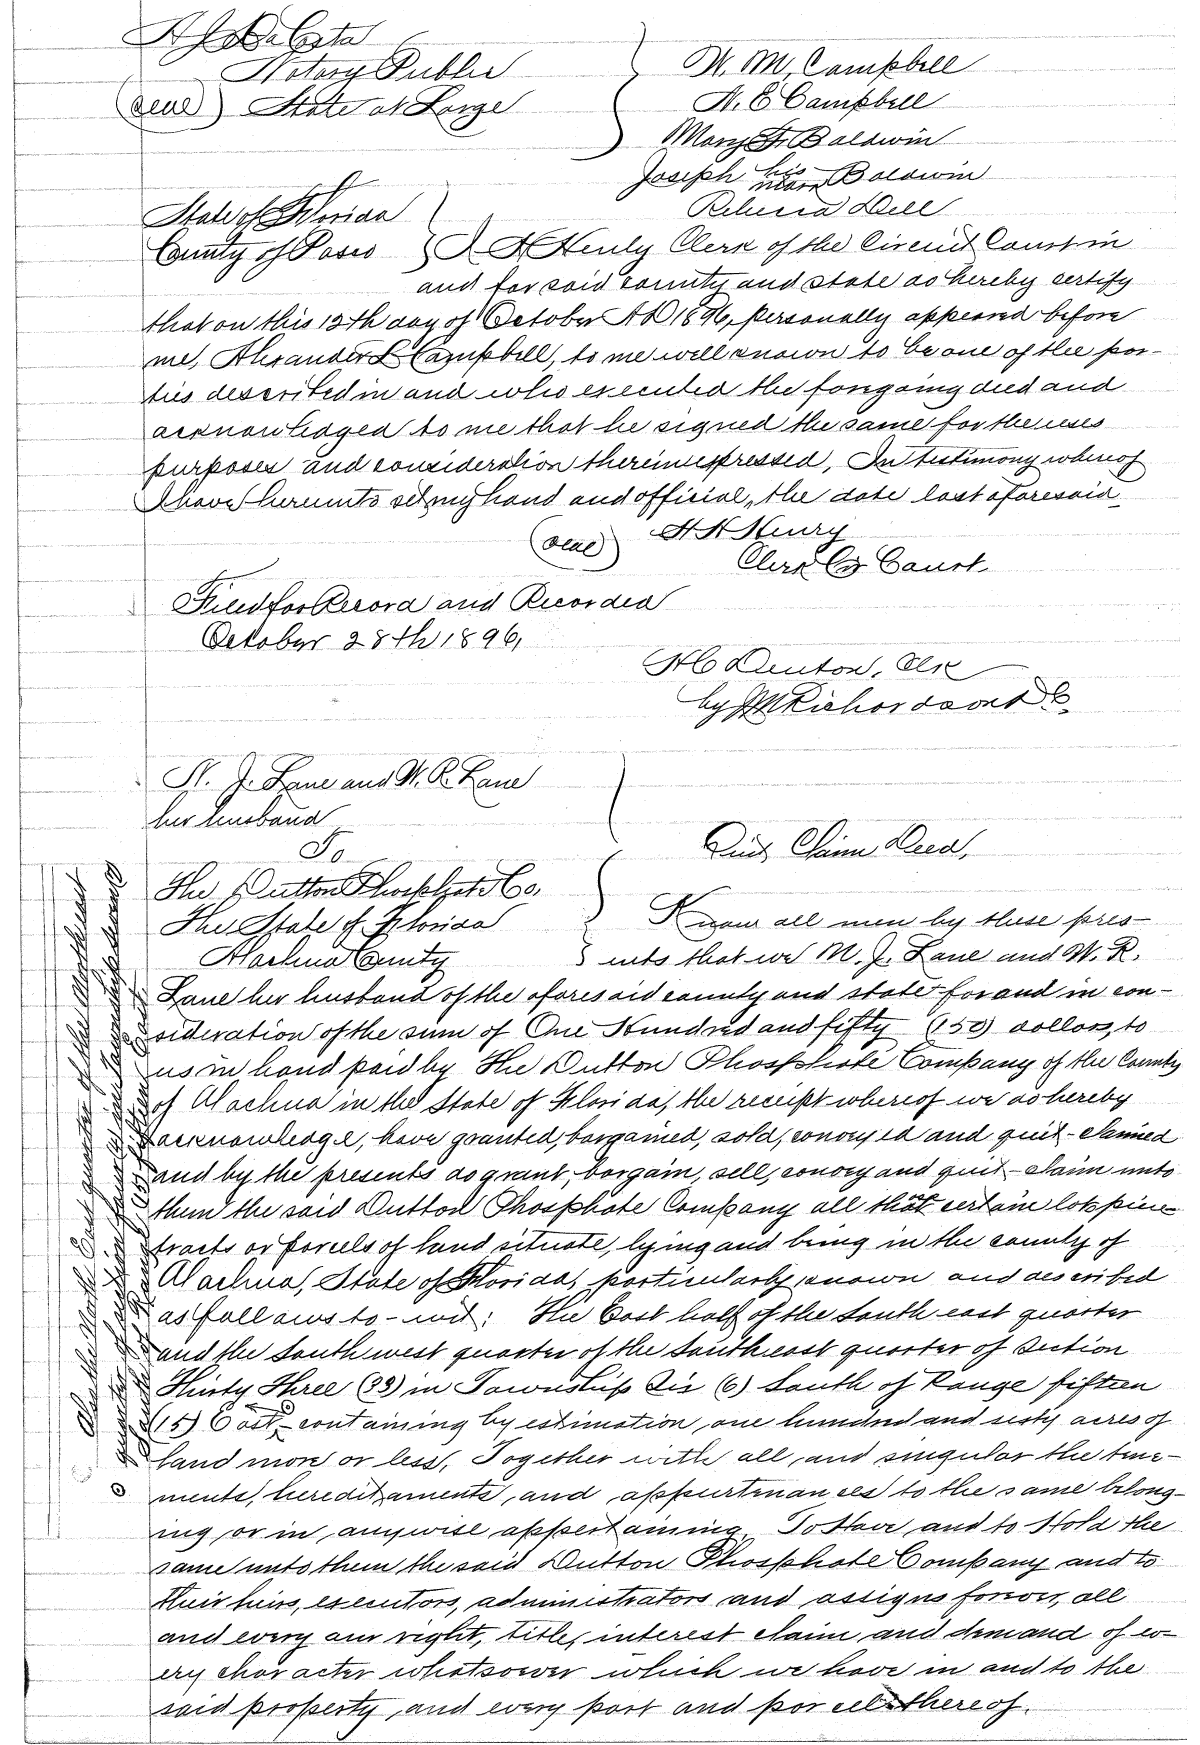 Notary Public
(seal) State at Large
W. M. Campbell
A. E Campbell
Mary F. Baldwin
Joseph his mark Baldwin
Rebecca Dell
State of Florida
County of Pasco I A H Henly Clerk of the Circuit Court in
and for said county and state do hereby certify
that on this 12th day of October AD 1896, personally appeared before
me, Alexander L Campbell, to me well known to be one of the par-
ties described in and who executed the foregoing deed and
acknowledged to me that he signed the same for the uses
purposes and consideration therein expressed, In testimony whereof
I have hereunto set my hand and official, the date last aforesaid
(seal)
Clerk Co Court.
Filed for Record and Recorded
October 28th 1896,
Denton, Clk
by Richardson D C.
M. J. Lane and W. R. Lane
her husband
To
The Dutton Phosphate Co.
Quit Claim Deed,
The State of Florida Know all men by these pres-
Alachua County ents that we M. J. Lane and W. R.
Lane her husband of the aforesaid county and state for and in con-
sideration of the sum of One Hundred and fifty (150) dollars, to
us in hand paid by The Dutton Phosphate Company of the County
of Alachua in the State of Florida, the receipt whereof we do hereby
acknowledge, have granted, bargained, sold, conveyed and quit-claimed
and by the presents do grant, bargain, sell, convey and quit-claim unto
them the said Dutton Phosphate Company all that certain lots piece
tracts or parcels of land situate, lying and being in the county of
Alachua, State of Florida, particularly known and described
as follows to-wit: The East half of the South east quarter
and the South west quarter of the South east quarter of Section
Thirty Three (33) in Township Six (6) South of Range fifteen
(15) East, containing by estimation, one hundred and sixty acres of
land more or less, Together with all, and singular the tene-
ments, hereditaments, and appurtenances to the same belong-
ing, or in, anywise appertaining. To Have, and to Hold the
same unto them the said Dutton Phosphate Company and to
their heirs, executors, administrators and assigns forever, all
and every our right, title, interest claim and demand of ev-
ery character whatsoever which we have in and to the
said property, and every part and parcel thereof.
Also the North East quarter of the Northeast